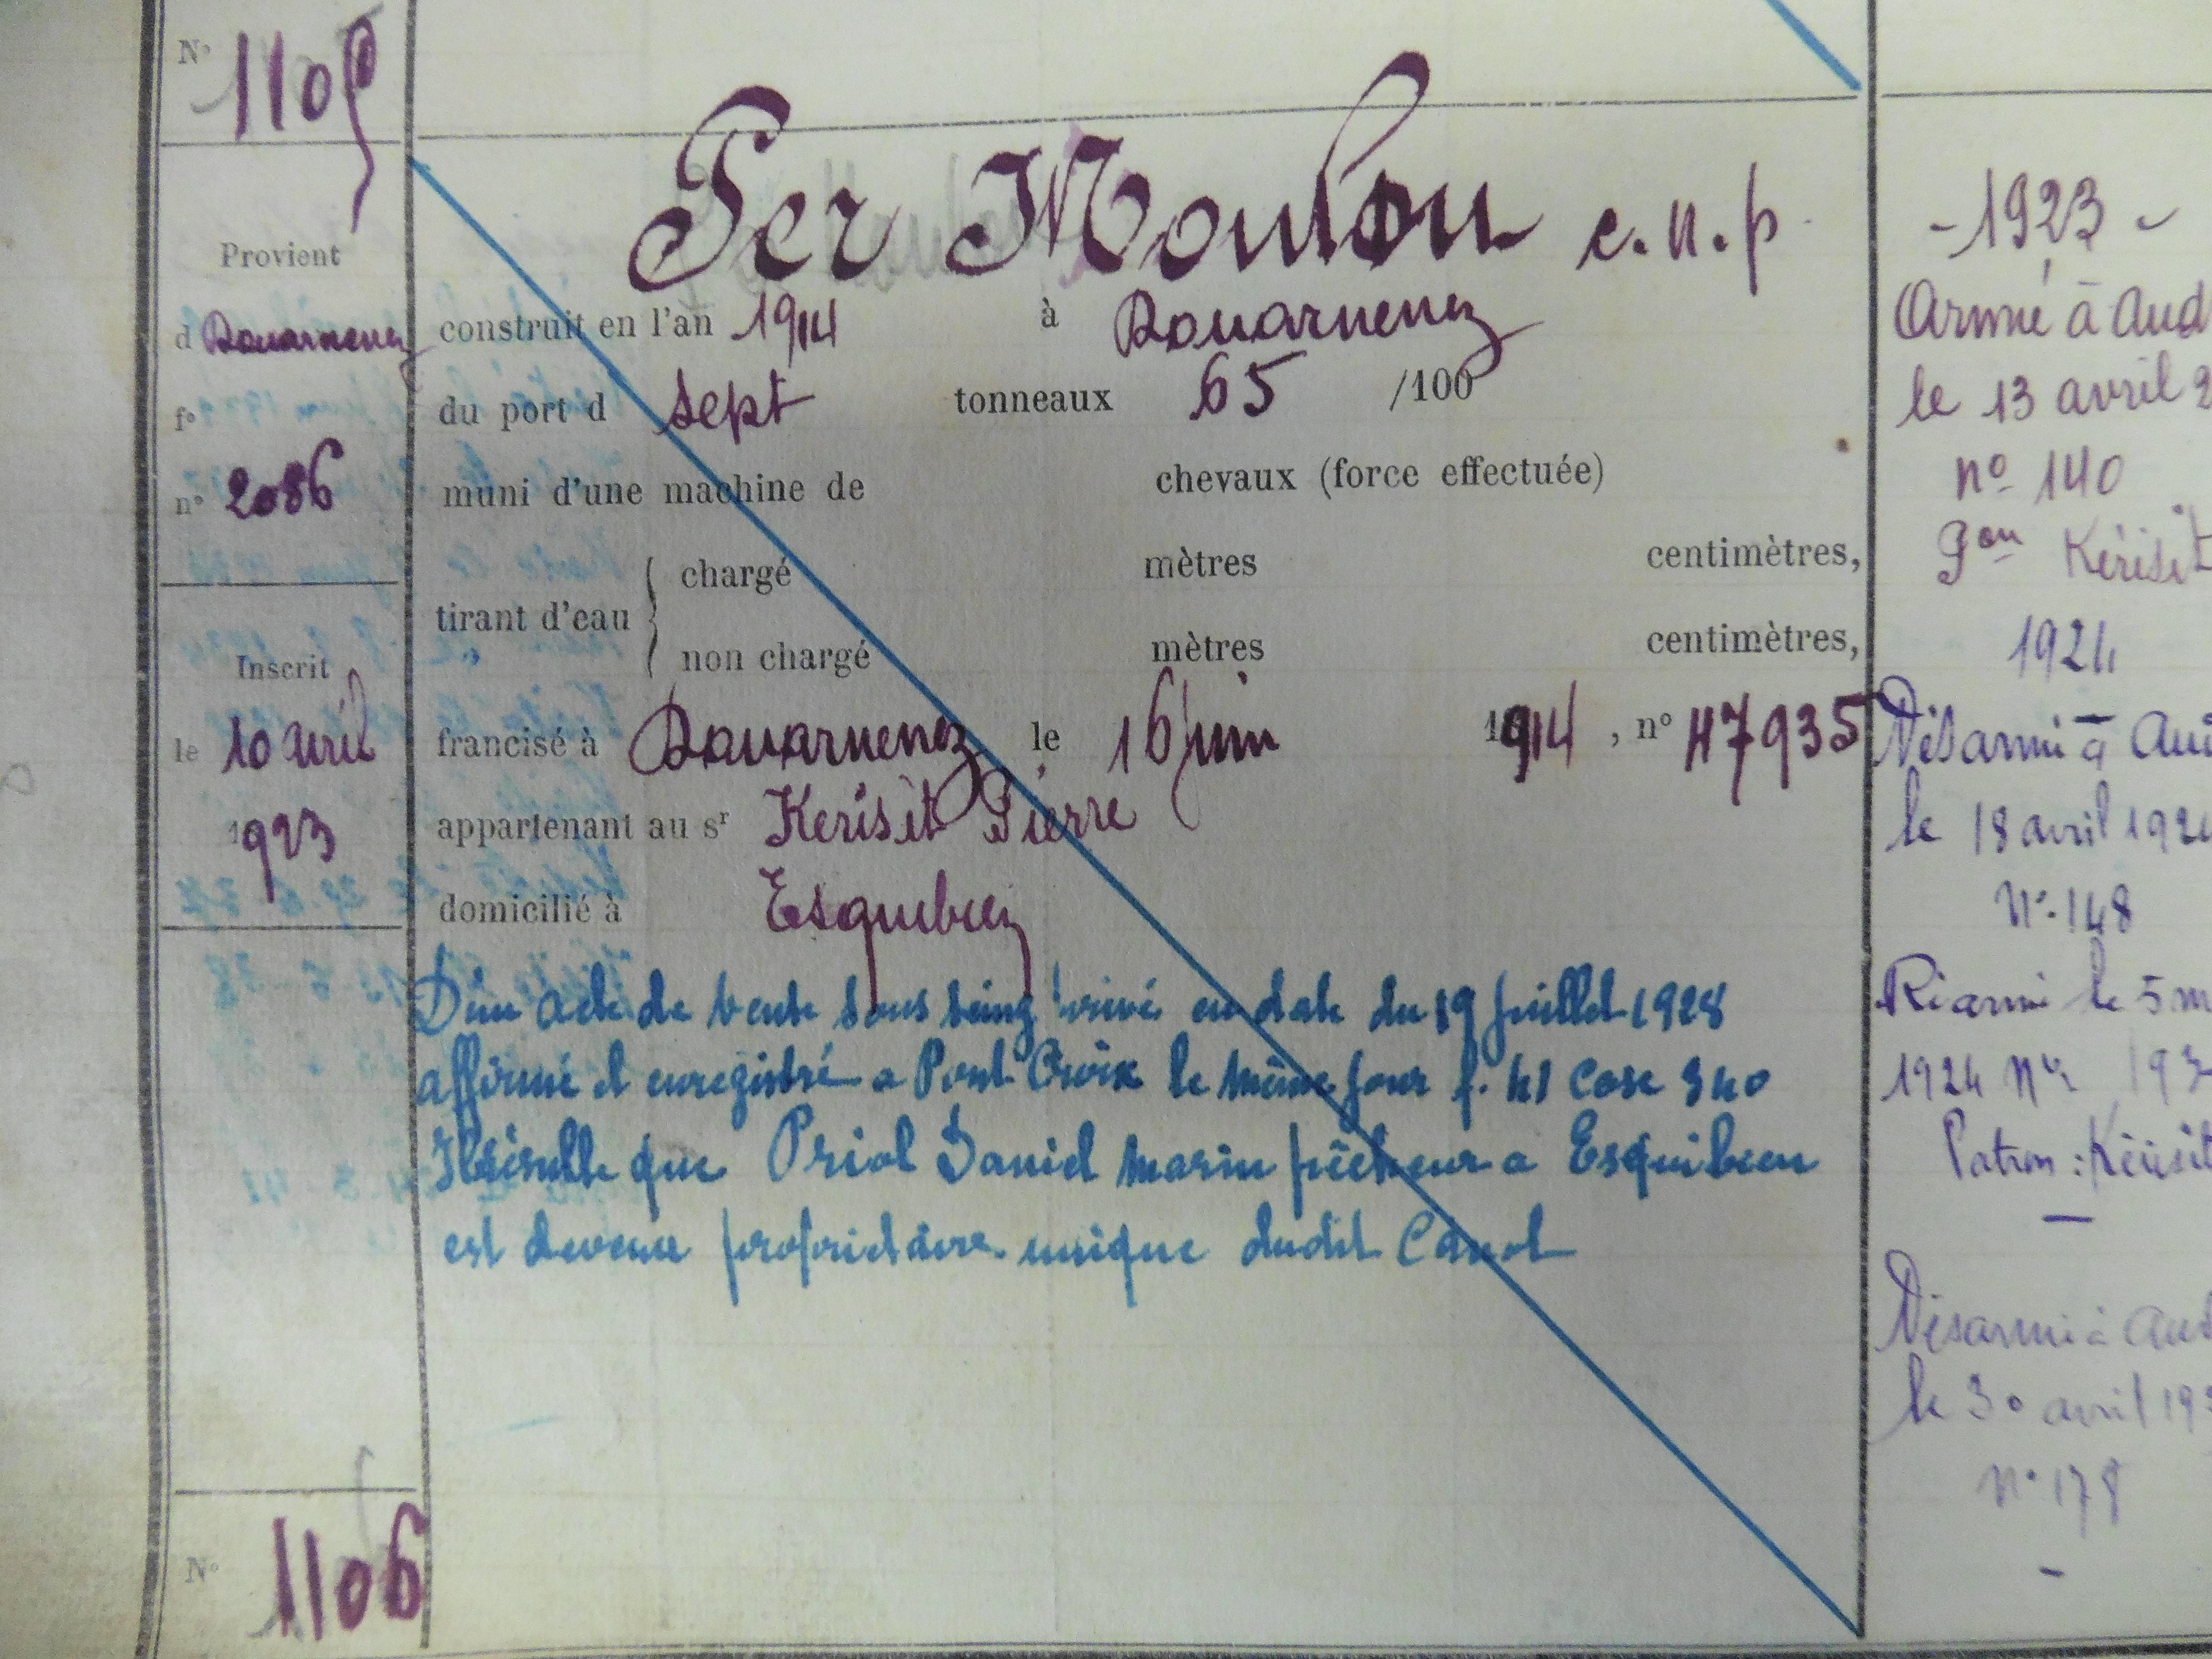 N° 1105
Per Moulou c.n.p.
Provient
d Douarnenez
f°
n° 2086
Inscrit
le 10 avril
1923
construit en l'an 1914 à Douarnenez
du port d sept tonneaux 65 /100
muni d'une machine de chevaux (force effectuée)
tirant d'eau
chargé mètres centimètres,
non chargé mètres centimètres,
francisé à Douarnenez le 16 juin 1914, n° H7935
appartenant au sr Kerisit Pierre
domicilié à Esquibien
D'un acte de vente sous seing privé en date du 19 juillet 1928
affirmé et enregistré a Pont Croix le même jour f. 41 Case 340
Il résulte que Priol Daniel marin pêcheur a Esquibien
est devenu propriétaire unique dudit Canot
N° 1106
- 1923 -
Armé à Aud
le 13 avril 2
n° 140
Pon Kérisit
1924
Désarmé à Aud
le 18 avril 192
N° 148
Réarmé le 5 m
1924 N° 193
Patron : Kérisit
Désarmé à Aud
le 30 avril 19
N° 178